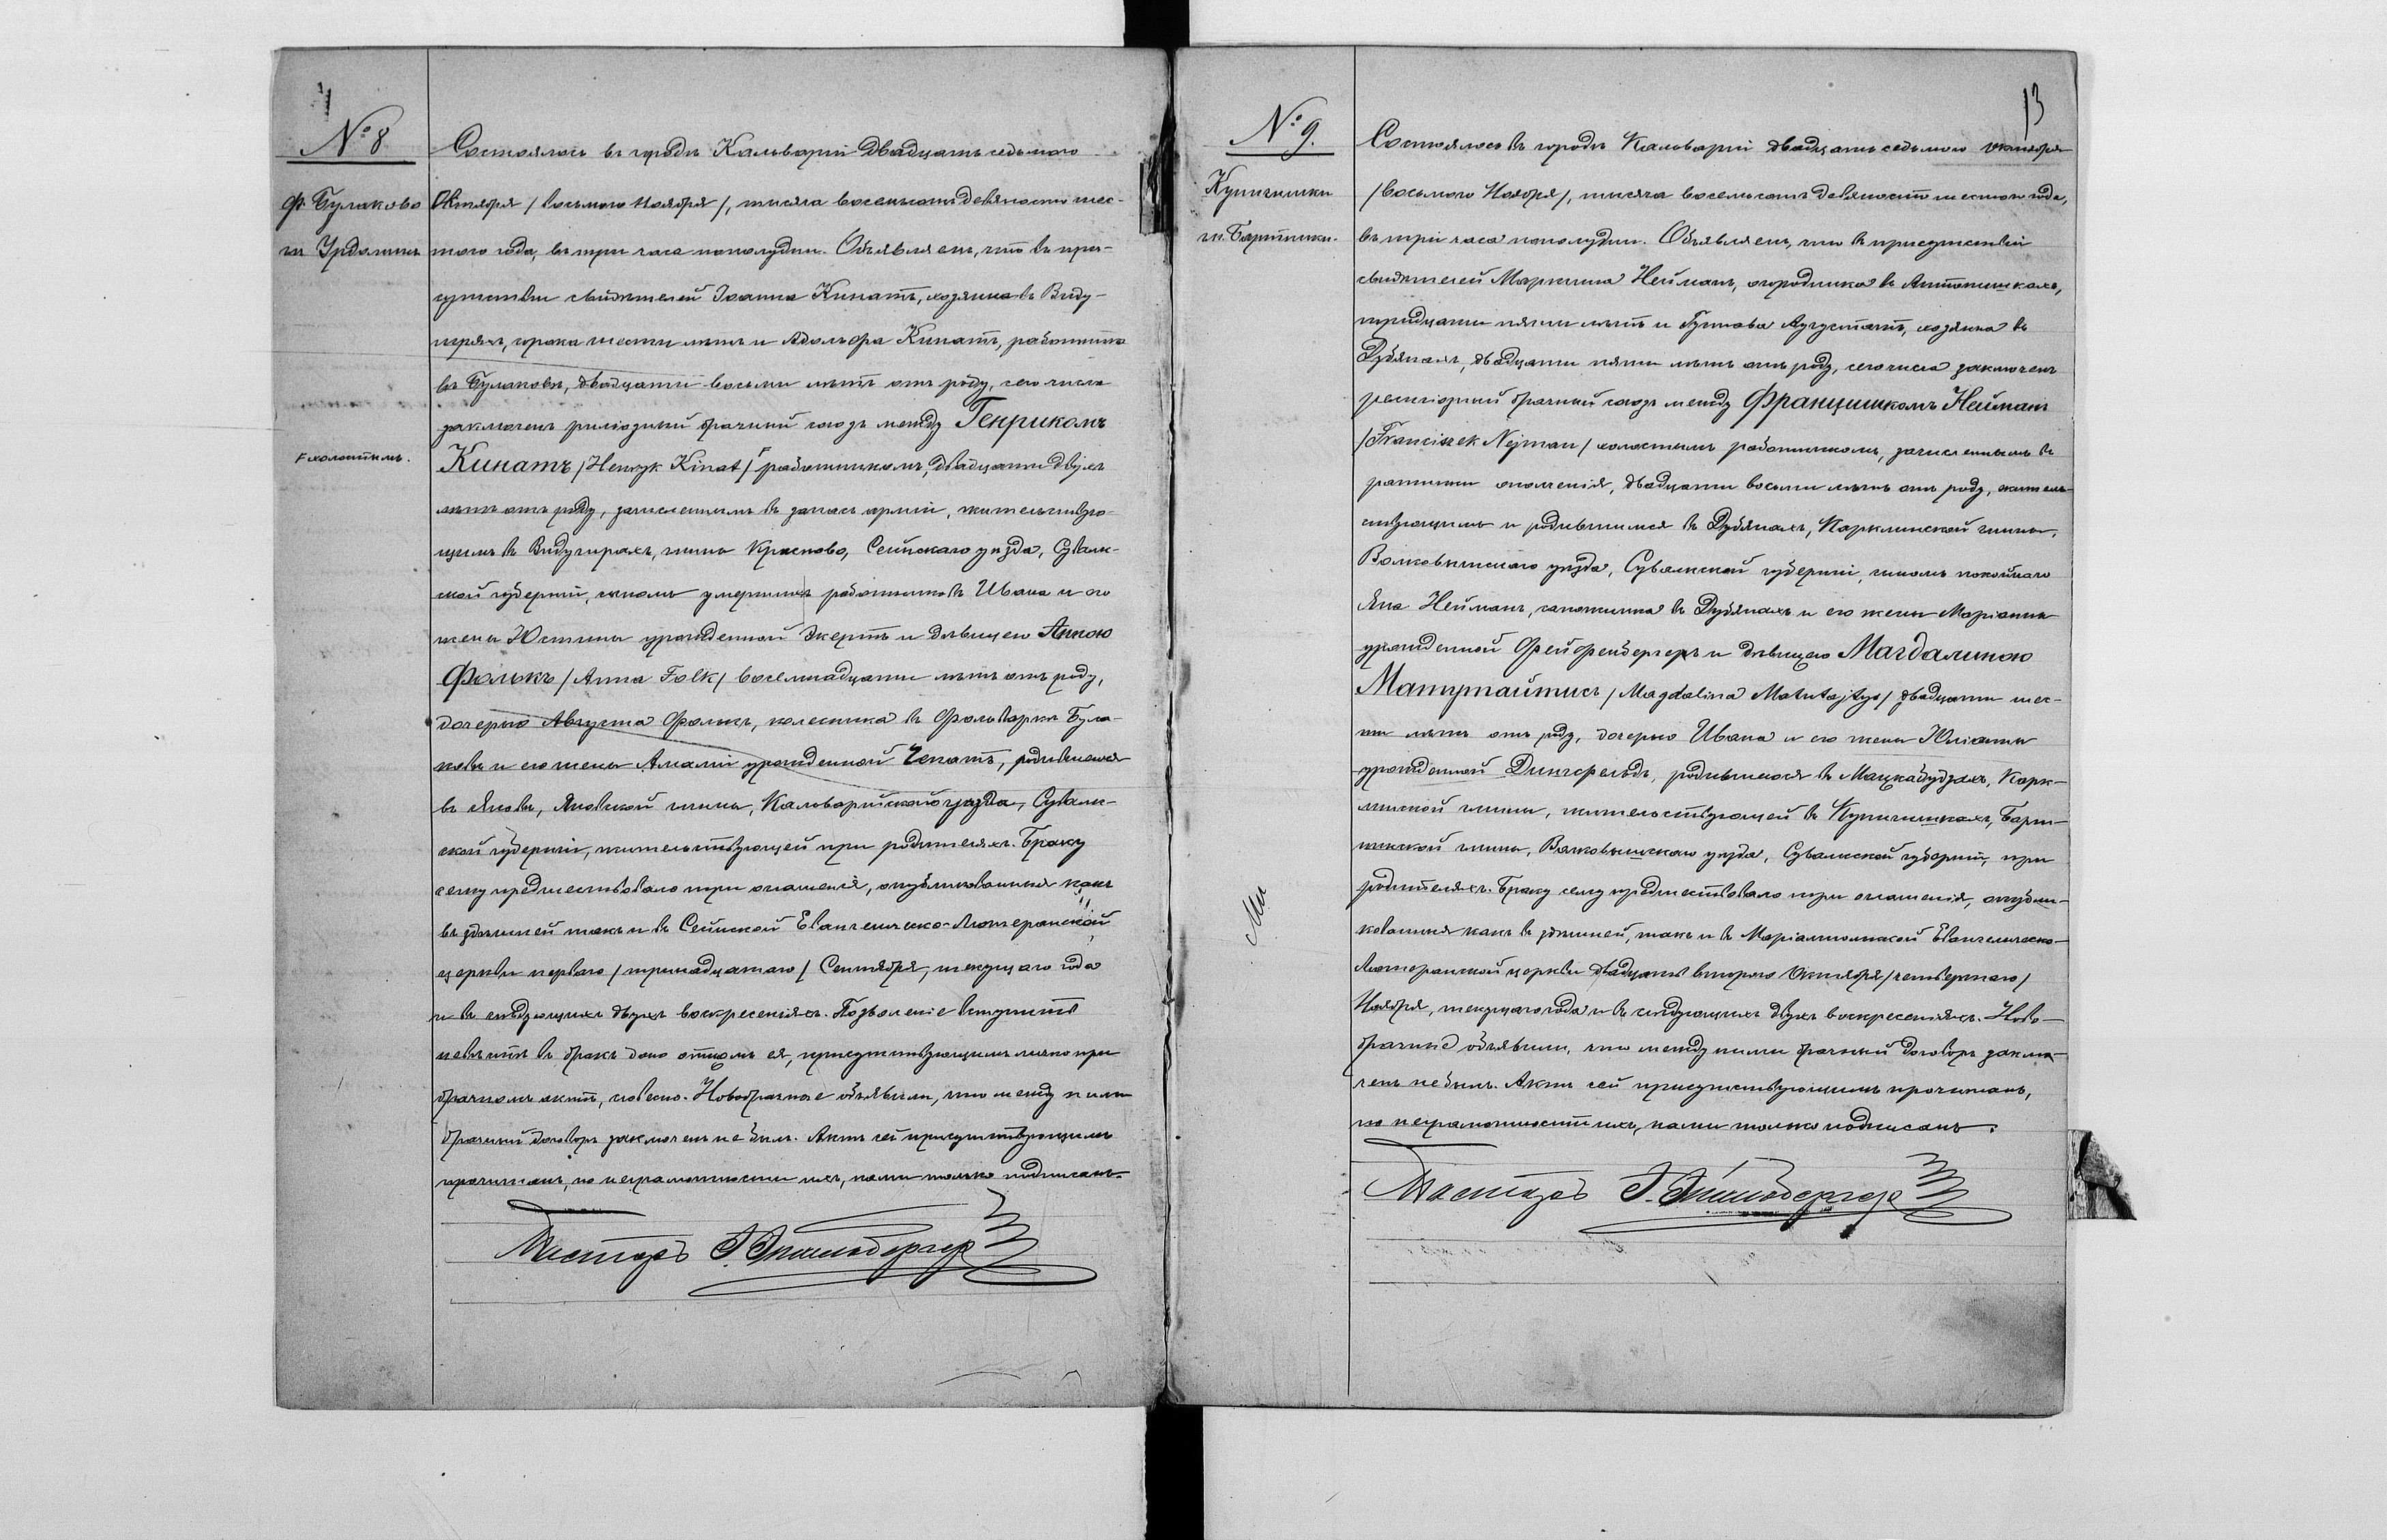 № 8
ф. Булаково
гм. Урдоминъ
Состоялось въ городѣ Кальваріи двадцать седьмого
Октября /восьмого Ноября/, тысяча восемьсотъ девяносто шес-
того года, въ три часа пополудни. Объявляемъ, что въ при-
сутствіи свидѣтелей Іоанна Кинатъ, хозяина въ Виду-
гиряхъ, сорока шести лѣтъ и Адольфа Кинатъ, работника
въ Булаковѣ, двадцати восьми лѣтъ отъ роду, сего числа
заключенъ религіозный брачный союзъ между Генрикомъ
Кинатъ /Henryk Kinat/ ꜰ работникомъ, двадцати двухъ
ꜰ холостымъ.
лѣтъ отъ роду, зачисленнымъ въ запасъ арміи, жительствую-
щимъ въ Видугирахъ, гмины Красново, Сейнскаго уѣзда, Сувалк-
ской губерніи, сыномъ умершихъ работниковъ Ивана и его
жены Юстины урожденной Экертъ и дѣвицею Анною
Фолькъ /Anna Folk/ восемнадцати лѣтъ отъ роду,
дочерью Августа Фолькъ, колесника въ Фольваркѣ Була-
ковѣ и его жены Амаліи урожденной, родившеюся
въ Яновѣ, Яновской гмины, Кальварійскаго уѣзда, Сувалк-
ской губерніи, жительствующей при родителяхъ. Браку
сему предшествовало три оглашенія, опубликованныя какъ
въ здѣшней такъ и въ Сейнской Евангелическо-Лютеранской
церкви перваго /тринадцатаго/ Сентября, текущаго года
и въ слѣдующихъ двухъ воскресеніяхъ. Позволеніе вступить
невѣстѣ въ бракъ дано отцомъ ея, присутствующимъ лично при
брачномъ актѣ, словесно. Новобрачные объявили, что между ними
брачный договоръ заключенъ не былъ. Актъ сей присутствующимъ
прочитанъ, по неграмотности ихъ, нами только подписанъ.
Пасторъ
13
№ 9.
Купчишки
гм. Бартники.
Состоялось въ городѣ Кальваріи двадцать седьмого Октября
/восьмого Ноября/, тысяча восемьсотъ девяносто шестого года,
въ три часа пополудни. Объявляемъ, что въ присутствіи
свидѣтелей Мартина Нейманъ, огородника въ Антонишкахъ,
тридцати пяти лѣтъ и Густава Аугустатъ, хозяина въ
Дубянахъ, двадцати пяти лѣтъ отъ роду, сего числа заключенъ
религіозный брачный союзъ между Францишкомъ Нейманъ
/Franciszek Nejman/ холостымъ работникомъ, зачисленнымъ въ
ратники ополченія, двадцати восьми лѣтъ отъ роду, житель-
ствующимъ и родившимся въ Дубянахъ, Карклинской гмины,
Волковышскаго уѣзда, Сувалкской губерніи, сыномъ покойнаго
Яна Нейманъ, сапожника въ Дубянахъ и его жены Маріанны
урожденной Фейфрейдергеръ и дѣвицею Магдалиною
Матутайтисъ /Magdalina Matutajtys/ двадцати шес-
ти лѣтъ отъ роду, дочерью Ивана и его жены Юліанны
урожденной Дингфельдъ, родившеюся въ Мацкабудзяхъ, Карк-
линской гмины, жительствующей въ Купчишкахъ, Барт-
никской гмины, Волковышскаго уѣзда, Сувалкской губерніи, при
родителяхъ. Браку сему предшествовало три оглашенія, опубли-
кованныя какъ въ здѣшней, такъ и въ Маріампольской Евангелическо-
Лютеранской церкви двадцать второго Октября /четвертаго/
Ноября, текущаго года и въ слѣдующихъ двухъ воскресеніяхъ. Ново-
брачные объявили, что между ними брачный договоръ заклю-
ченъ не былъ. Актъ сей присутствующимъ прочитанъ,
по неграмотности ихъ, нами только подписанъ.
Пасторъ